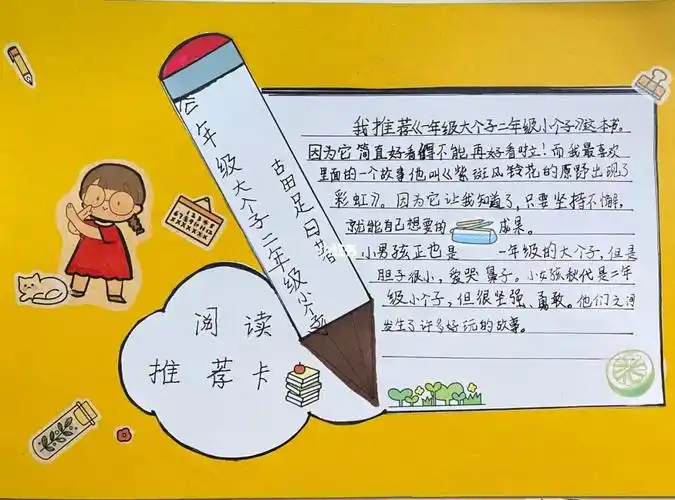 《一年级大个子二年级小个子》
古田足日 著
阅读
推荐卡
我推荐《一年级大个子二年级小个子》这本书。
因为它简直好看得不能再好看啦！而我最喜欢
里面的一个故事他叫《紫斑风铃花的原野出现了
彩虹》。因为它让我知道了，只要坚持不懈，
就能自己想要的成果。
小男孩正也是一年级的大个子，但是
胆子很小，爱哭鼻子。小女孩秋代是二年
级小个子，但很坚强、勇敢。他们之间
发生了许多好玩的故事。